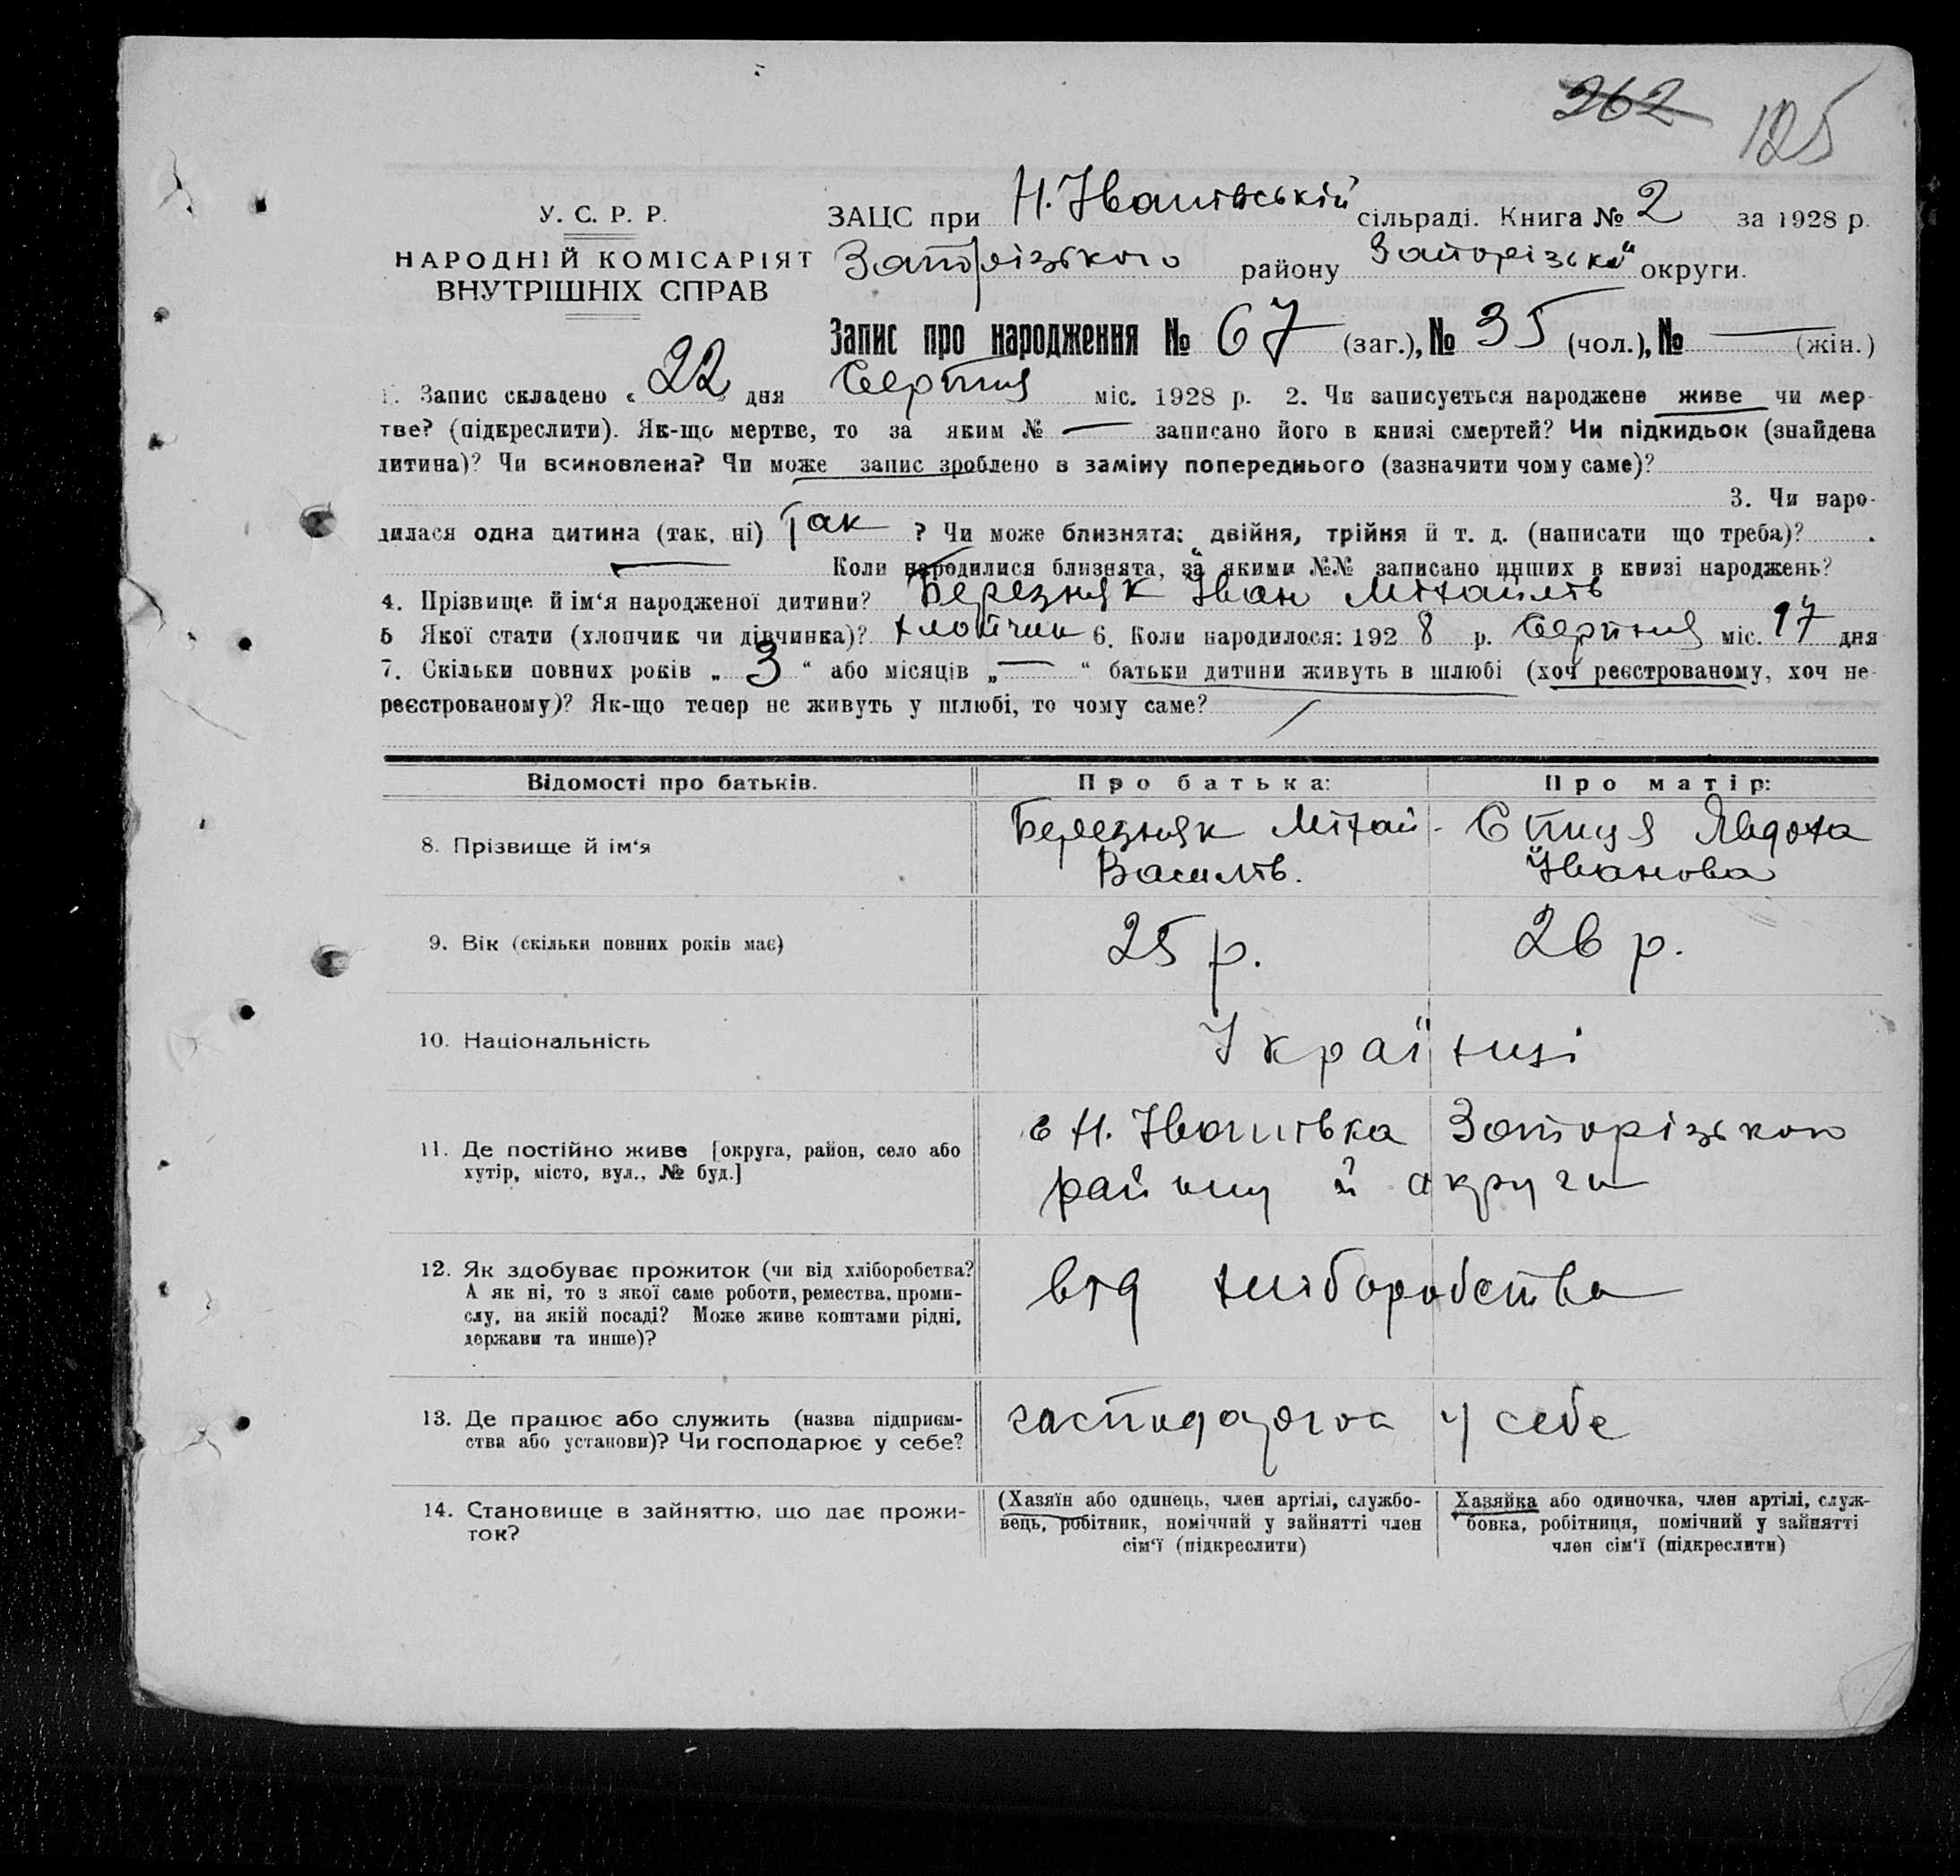 262 125
У. С. Р. Р.
НАРОДНІЙ КОМІСАРІЯТ
ВНУТРІШНІХ СПРАВ
ЗАЦС при Н. Іванівській сільраді. Книга № 2 за 1928 р.
Запорізького району Запорізької округи.
Запис про народження № 67 (заг.), № 35 (чол.), № — (жін.)
1. Запис складено « 22 » дня Серпня міс. 1928 р. 2. Чи записується народжене живе чи мер-
тве? (підкреслити). Як-що мертве, то за яким № — записано його в книзі смертей? Чи підкидьок (знайдена
дитина)? Чи всиновлена? Чи може запис зроблено в заміну попереднього (зазначити чому саме)?
3. Чи наро-
дилася одна дитина (так, ні) Так ? Чи може близнята: двійня, трійня й т. д. (написати що треба)?
— Коли народилися близнята, за якими №№ записано инших в книзі народжень?
4. Прізвище й ім‘я народженої дитини? Березняк Іван Міхайлів
5 Якої стати (хлопчик чи дівчинка)? хлопчик 6. Коли народилося: 1928 р. Серпня міс. 17 дня
7. Скільки повних років „ 3 “ або місяців „ — “ батьки дитини живуть в шлюбі (хоч реєстрованому, хоч не-
реєстрованому)? Як-що тепер не живуть у шлюбі, то чому саме?
Відомості про батьків. Про батька: Про матір:
8. Прізвище й ім‘я Березняк Міхай- Спиця Явдоха
Васильів. Іванова
9. Вік (скільки повних років має) 25 р. 26 р.
10. Національність Українці
11. Де постійно живе [округа, район, село або с Н. Іванівка Запорізького
хутір, місто, вул., № буд.] району й округи
12. Як здобуває прожиток (чи від хліборобства? від хліборобства
А як ні, то з якої саме роботи, ремества, проми-
слу, на якій посаді? Може живе коштами рідні,
держави та инше)?
13. Де працює або служить (назва підприєм- господарює у себе
ства або установи)? Чи господарює у себе?
14. Становище в зайняттю, що дає прожи-
ток?
(Хазяїн або одинець, член артілі, службо-
вець, робітник, помічний у зайнятті член
сім‘ї (підкреслити)
Хазяйка або одиночка, член артілі, служ-
бовка, робітниця, помічний у зайнятті
член сім‘ї (підкреслити)